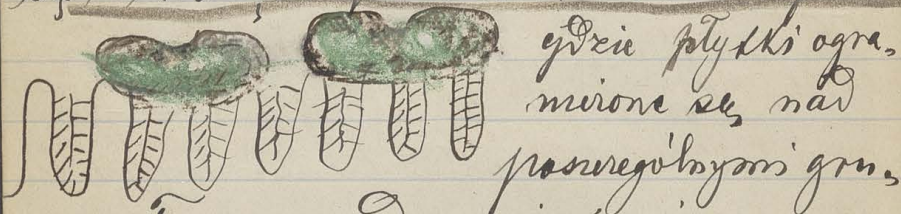 gdzie płytki ogra-
niczone są nad
poszczególnymi gru-